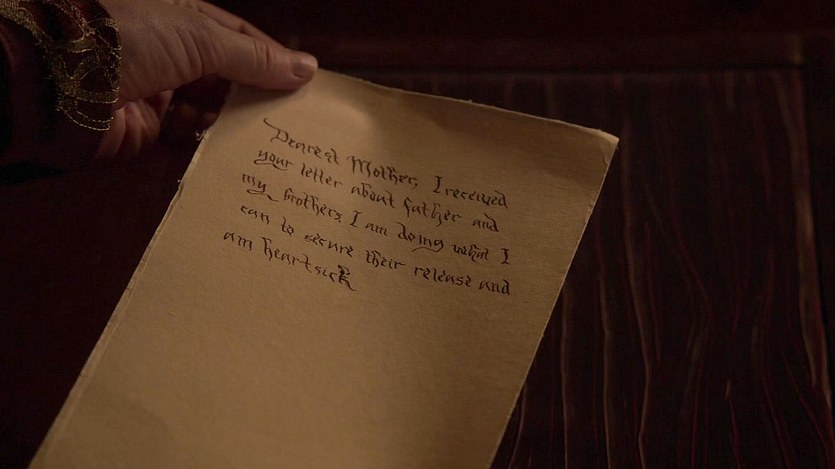 Dearest Mother, I received
your letter about father and
my brothers. I am doing what I
can to secure their release and
am heartsick